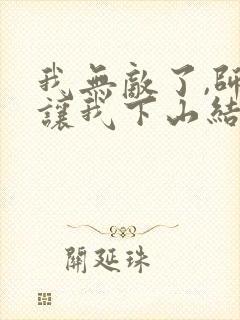 我無敵了,師
讓我下山結
關延珠